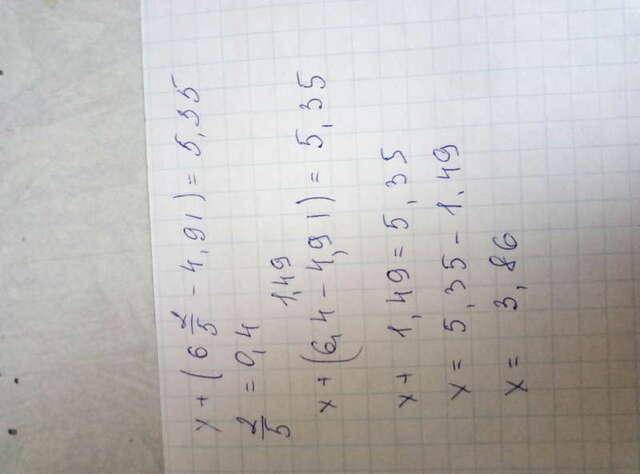 x + (6 2/5 - 4,91) = 5,35
2/5 = 0,4
1,49
x + (6,4 - 4,91) = 5,35
x + 1,49 = 5,35
x = 5,35 - 1,49
x = 3,86